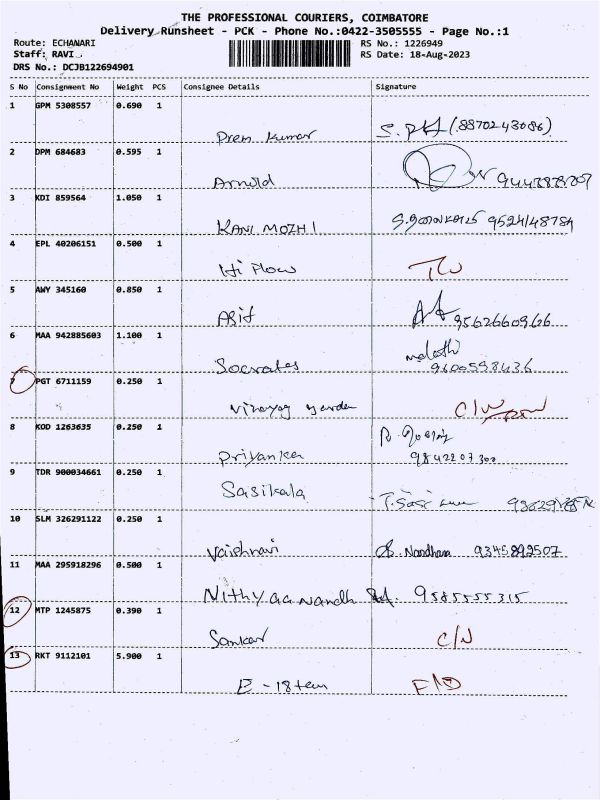 THE PROFESSIONAL COURIERS, COIMBATORE
Delivery Runsheet - PCK - Phone No.:0422-3505555 - Page No.:1
Route: ECHANARI RS No.: 1226949
Staff: RAVI . RS Date: 18-Aug-2023
DRS No.: DCJB122694901
S No Consignment No Weight PCS Consignee Details Signature
1 GPM 5308557 0.690 1
Prem Kumar (8870243086)
2 DPM 684683 0.595 1
Arnold
3 KDI 859564 1.050 1
KANI MOZHI 9524148784
4 EPL 40206151 0.500 1
Hi Flow
5 AWY 345160 0.850 1
Asif 9562660966
6 MAA 942885603 1.100 1
Socrates malathi
9600598436
7 PGT 6711159 0.250 1
C/N
8 KOD 1263635 0.250 1
Priyanka 9842207300
9 TDR 900034661 0.250 1
Sasikala
10 SLM 326291122 0.250 1
Vaishnavi Nandhana 9345892507
11 MAA 295918296 0.500 1
Nithyaanandh 9585555315
12 MTP 1245875 0.390 1
Sankar C/N
13 RKT 9112101 5.900 1
E-18tem